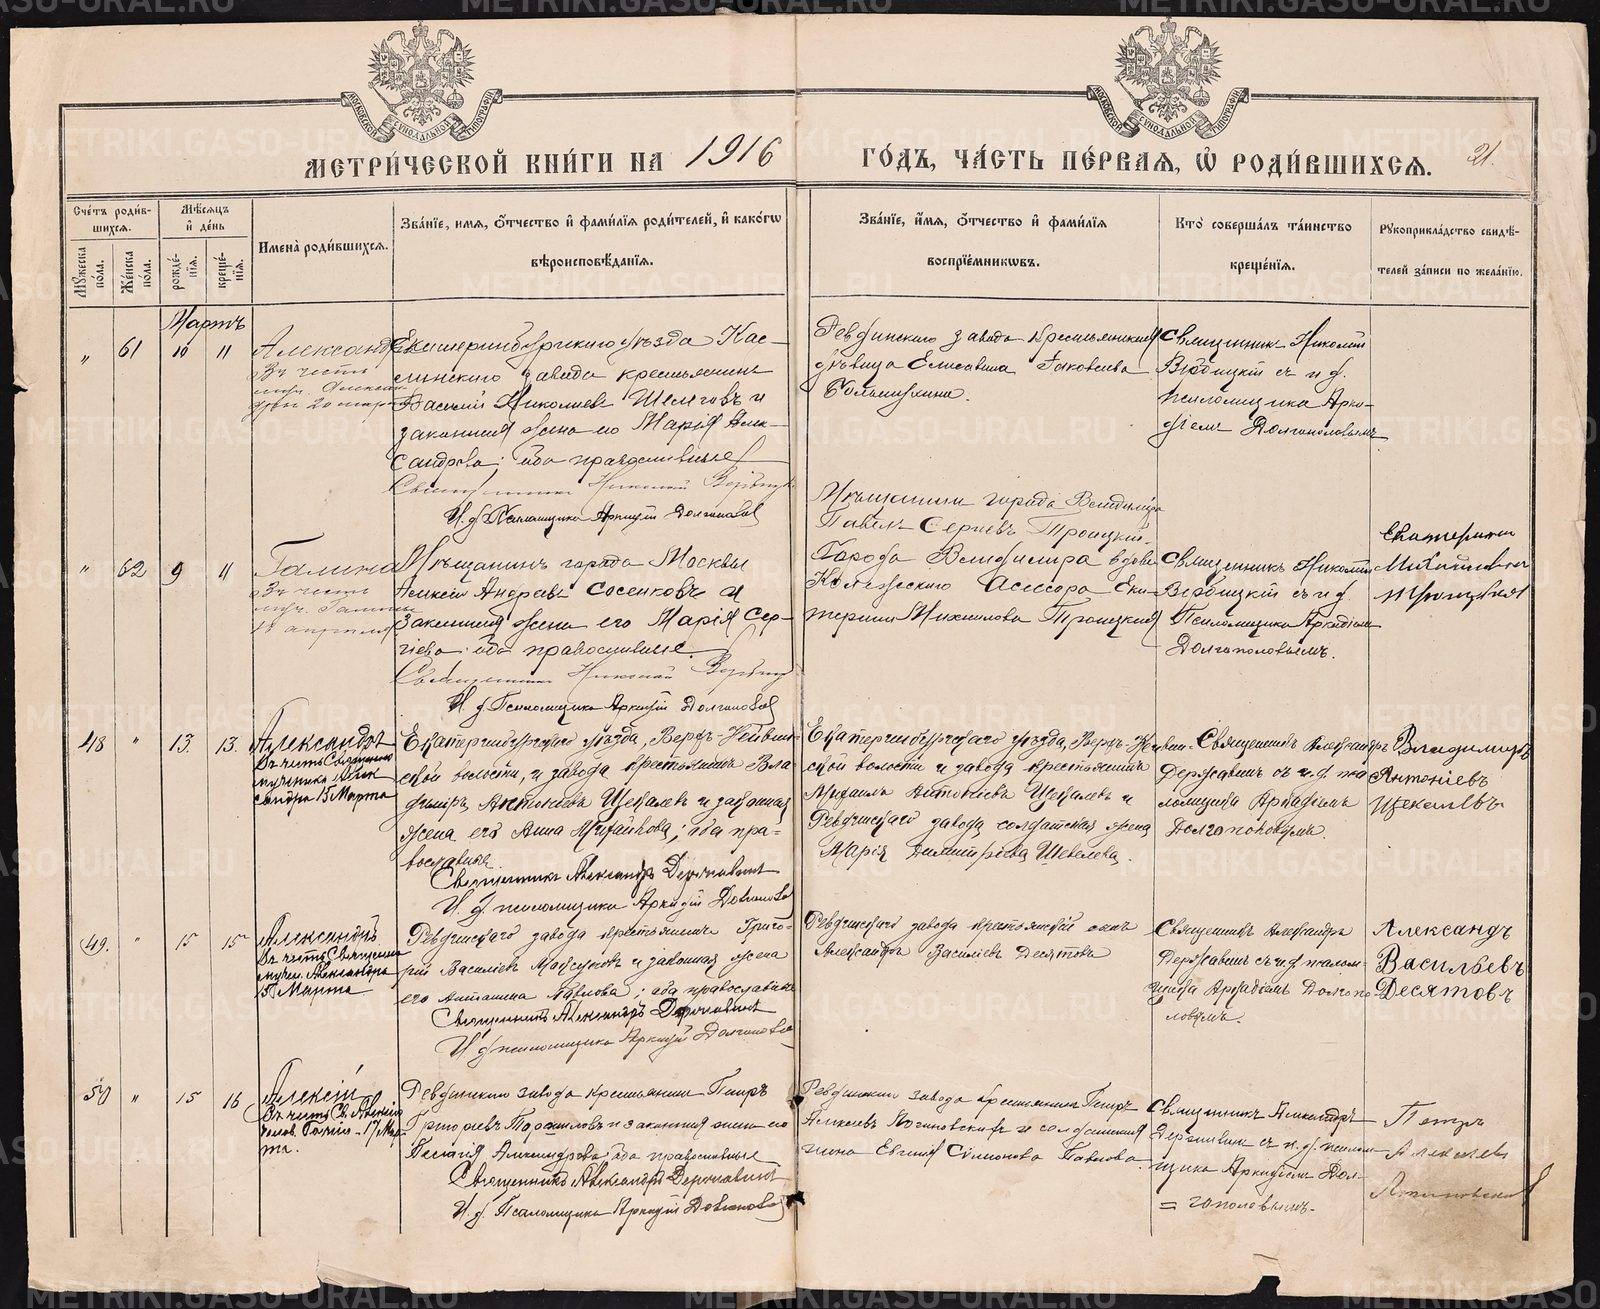 МЕТРИ́ЧЕСКОЙ КНИ́ГИ НА 1916
ГО́ДЪ, ЧА́СТЬ ПЕ́РВАЯ, Ѡ РОДИ́ВШИХСЯ. 21.
МОСКОВСКОЙ СѴНОДАЛЬНОЙ ТИПОГРАФІИ
МОСКОВСКОЙ СѴНОДАЛЬНОЙ ТИПОГРАФІИ
Сче́тъ роди́вшихся.
Му́жеска по́ла.
Же́нска по́ла.
Мѣ́сяцъ и҆ де́нь
рожде́нїя.
креще́нїя.
И҆мена̀ роди́вшихся.
Зва́нїе, и҆́мя, ѻ҆́тчество и҆ фами́лїя роди́телей, и҆ како́гѡ
вѣроисповѣ́данїя.
Зва́нїе, и҆́мя, ѻ҆́тчество и҆ фами́лїя
воспрїе́мникѡвъ.
Кто̀ соверша́лъ та́инство
креще́нїя.
Рꙋкоприкла́дство свидѣ́-
телей за́писи по жела́нїю.
Мартъ
" 61 10 11
Екатеринбургскаго уѣзда Кас-
линскаго завода крестьянинъ
Василій Николаевъ и
законная жена его Марія Алек-
сандрова; оба православные
Священникъ Николай
И. д. Псаломщика Аркадій Долгополовъ
Ревдинскаго завода крестьянская
дѣвица Елисавета Іаковлева
Священник Николай
съ и. д.
псаломщика Арка-
діемъ Долгополовымъ
" 62 9 11
Галина
Въ честь
муч.
16 апрѣля
Мѣщанинъ города Москвы
Алексій Андреевъ Сосенковъ и
законная жена его Марія Сер-
гіева оба православные.
Священникъ Николай
И. д. Псаломщика Аркадій Долгополовъ
Мѣщанинъ города Владиміра
Павелъ Сергіевъ Троицкій.
Города Владиміра вдова
Коллежскаго Асессора Ека-
терина Михаилова Троицкая
Священникъ Николай
съ и. д.
Псаломщика Аркадіемъ
Долгополовымъ.
Екатерина
Михайловна
Троицкая
48 " 13. 13.
Александръ
Въ честь Священно
мученика Алек
сандра 15 Марта
Екатеринбургскаго уѣзда, Верхъ-Нейвин-
ской волости, и завода крестьянинъ Вла-
диміръ Антоніевъ и законная
жена его Анна Михайлова; оба пра-
вославные.
Священникъ Александръ Державинъ
И. д. псаломщика Аркадій Долгополовъ
Екатеринбургскаго уѣзда, Верхъ-Нейвин-
ской волости и завода крестьянинъ
Михаилъ Антоніевъ и
Ревдинскаго завода солдатская жена
Марія Димитріева Шевелева.
Священникъ Александръ
Державинъ съ и. д. пса-
ломщика Аркадіемъ
Долгополовымъ.
Владиміръ
Антоніевъ
49. " 15 15
Александръ
Въ честь Священно
муч. Александра
15 Марта
Ревдинскаго завода крестьянинъ Григо-
рій Василіевъ и законная жена
его Павлова; оба православные
Священникъ Александръ Державинъ
И. д. псаломщика Аркадій Долгополовъ
Ревдинскаго завода крестьянскій сынъ
Александръ Василіевъ Десятовъ
Священникъ Александръ
Державинъ съ и. д. псалом-
щика Аркадіемъ Долгопо-
ловымъ.
Александъ
Васильевъ
Десятовъ
50 " 15 16
Алексій
Въ честь Св. Алексія
челов. Божія - 17 Мар-
та.
Ревдинскаго завода крестьянинъ Петръ
Григоріевъ и законная жена его
Пелагія Александрова оба православные
Священникъ Александръ Державинъ
И. д. Псаломщика Аркадій Долгополовъ
Ревдинскаго завода крестьянинъ Петръ
Алексіевъ и солдатская
жена Евгенія Симонова Павлова.
Священникъ Александръ
Державинъ съ и. д. псалом-
щика Аркадіемъ Дол-
= гополовымъ.
Петръ
Алексѣевъ
METRIKI.GASO-URAL.RU